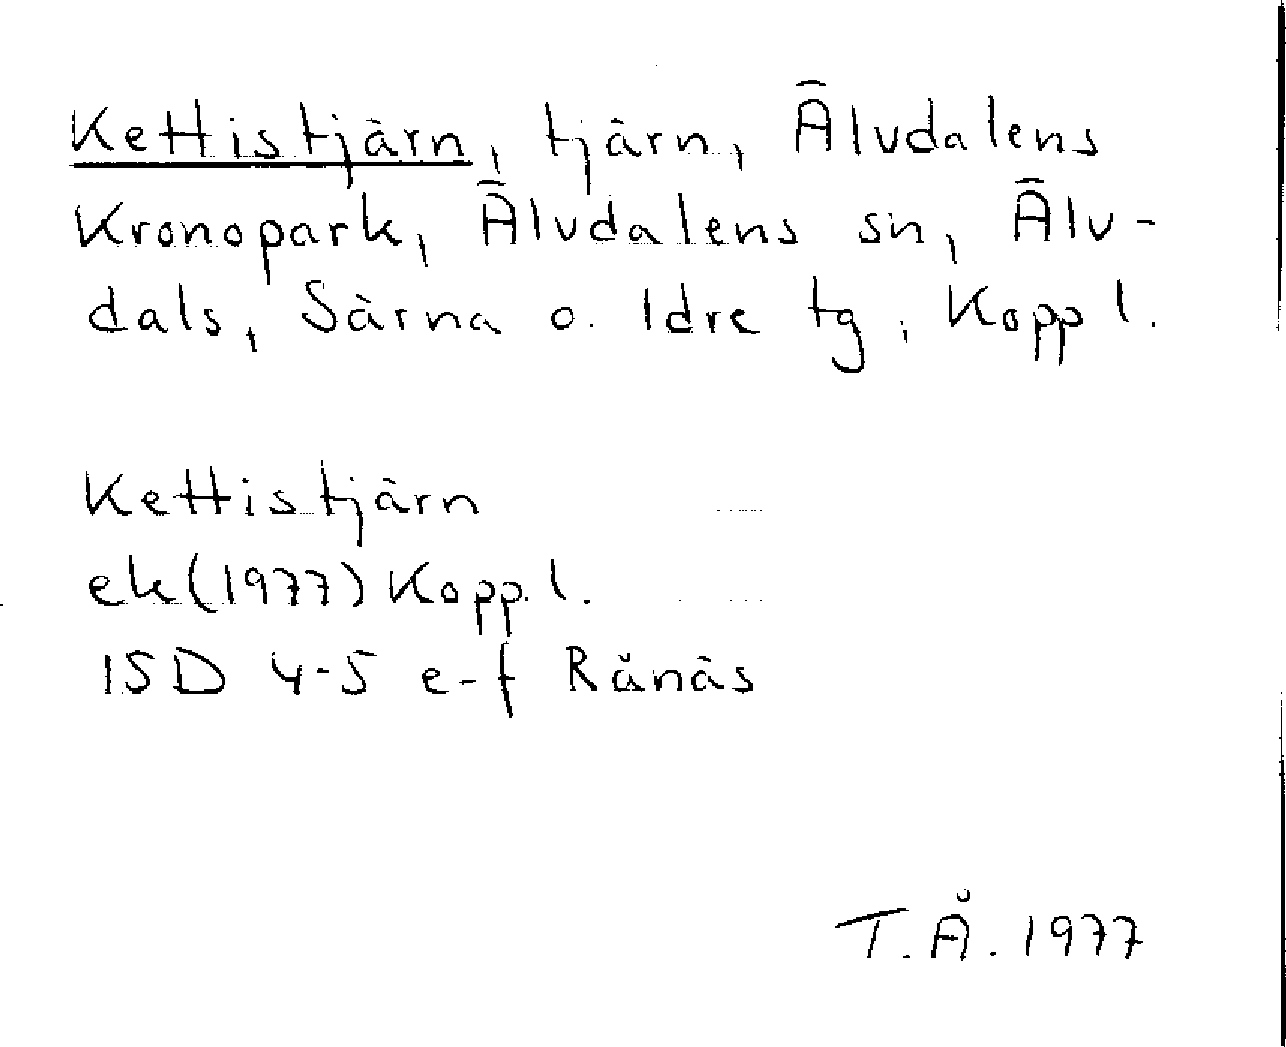 Kettistjärn, tjärn, Älvdalens
Kronopark, Älvdalens sn, Älv-
dals, Särna o. Idre tg, Koppl.
Kettistjärn
ek(1977) Koppl.
15D 4-5 e-f Rånäs
T.Å. 1977